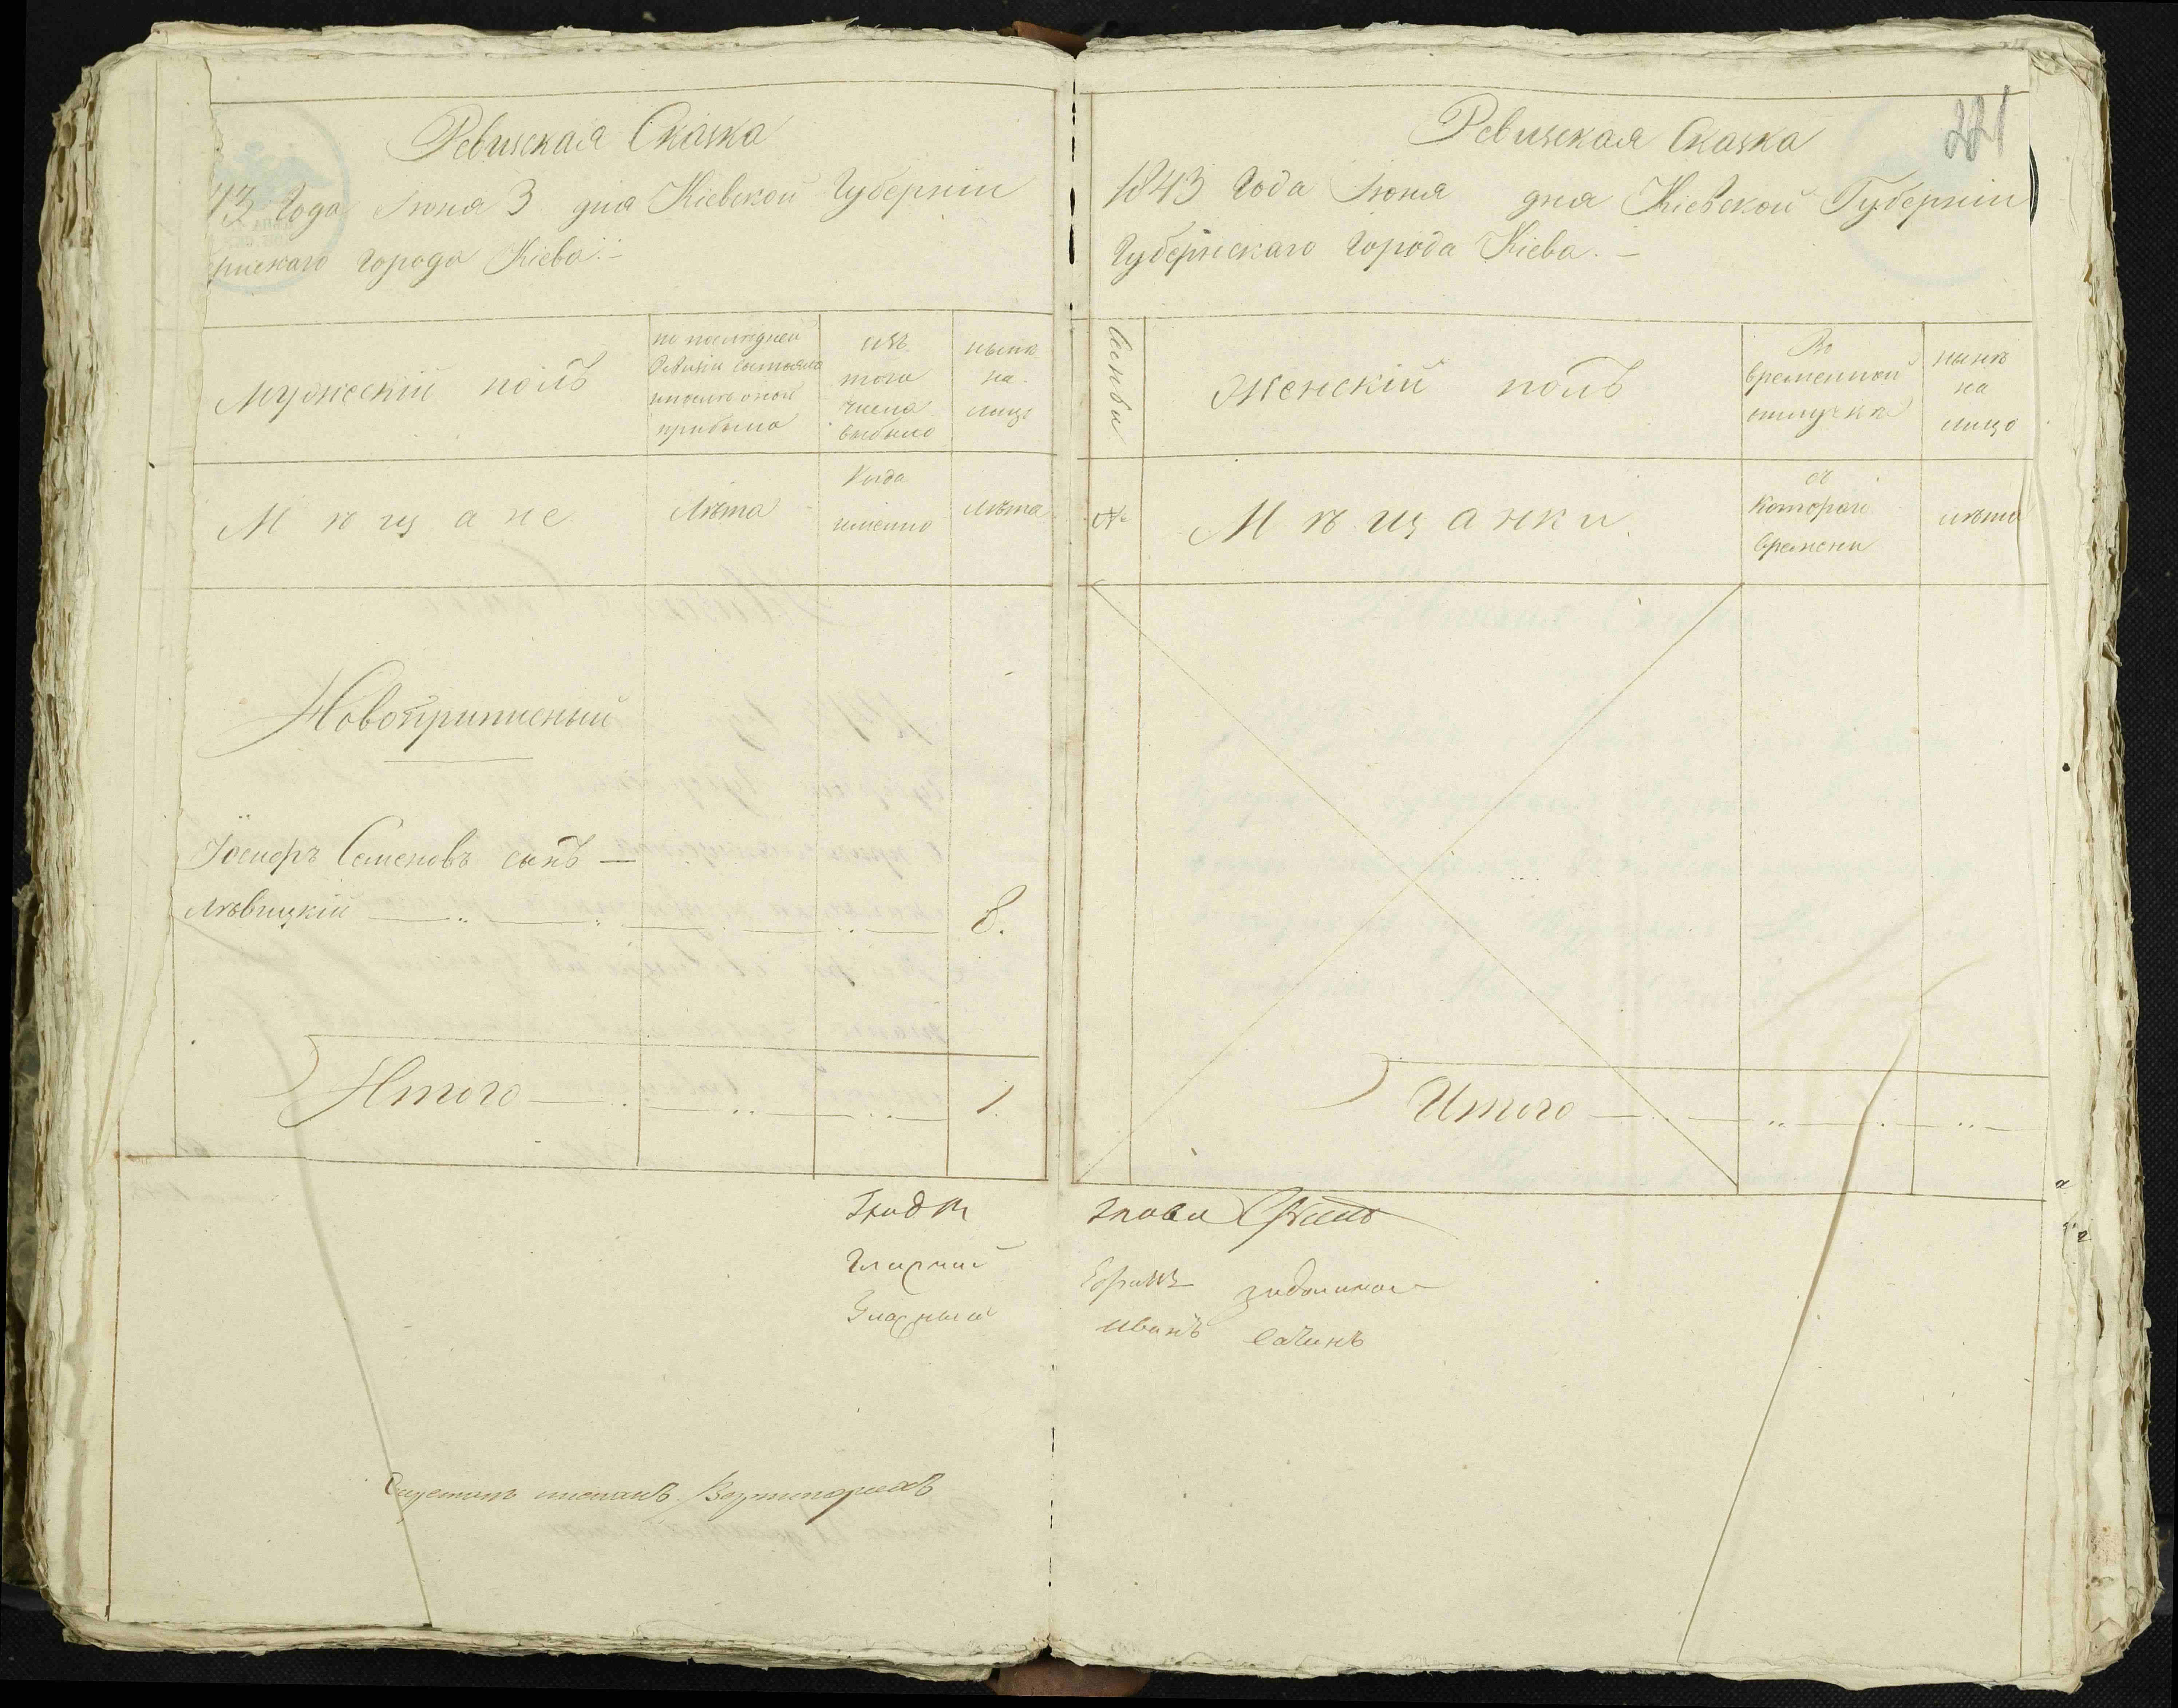 Ревизская Сказка
43 Года Июня 3 дня Кіевской Губерніи
рнскаго города Кіева.
мужескій полъ
по последней
Ревизіи состояло
и после оной
прибыло
изъ
того
числа
выбыло
ныне
на
лицо
Мѣщане
Лѣта
Когда
именно
Лѣта
Новоприписный
Іосифъ Семеновъ сынъ —
Лѣвицкій 8.
Итого 1.
Гласный
221
Ревизская Сказка
1843 Года Июня дня Кіевской Губерніи
Губернскаго Города Кіева. —
Семьи
Женскій полъ
Во
временной
отлучке
ныне
на
лицо
№
Мѣщанки.
съ
котораго
времени
лѣта
Итого
Глава
Иванъ